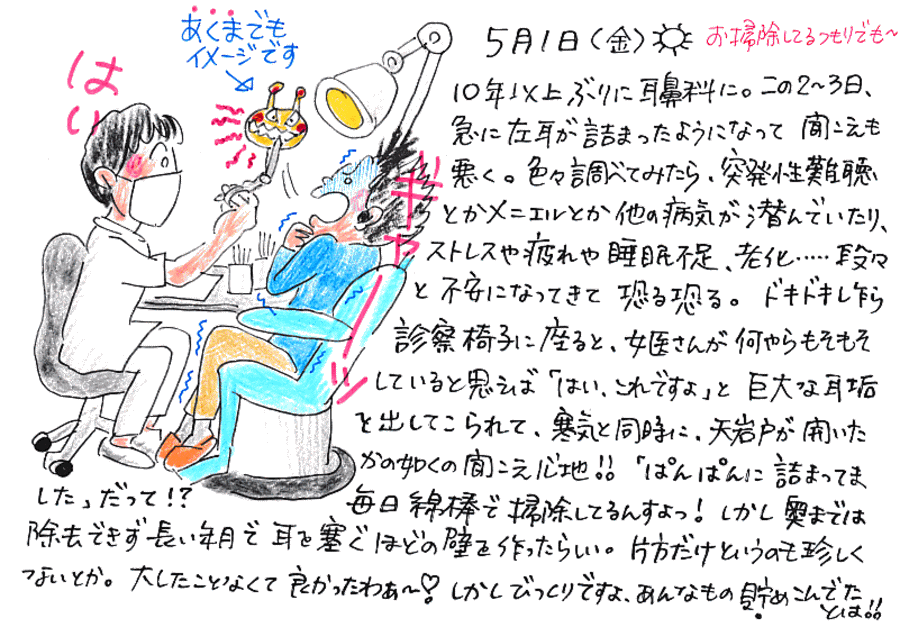 あくまでも
イメージです
はい
ギャーーッ
5月1日(金)☀ お掃除してるつもりでも〜
10年以上ぶりに耳鼻科に。この2〜3日、
急に左耳が詰まったようになって 聞こえも
悪く。色々調べてみたら、突発性難聴
とかメニエルとか他の病気が潜んでいたり、
ストレスや疲れや睡眠不足、老化……段々
と不安になってきて 恐る恐る。ドキドキし乍ら
診察椅子に座ると、女医さんが何やらもそもそ
していると思えば「はい、これですよ」と 巨大な耳垢
を出してこられて、寒気と同時に、天岩戸が開いた
かの如くの聞こえ心地!!「ぱんぱんに詰まってま
した」だって!? 毎日綿棒で掃除してるんすよっ!しかし奥までは
除去できず長い年月で耳を塞ぐほどの壁を作ったらしい。片方だけというのも珍しく
ないとか。大したことなくて良かったわぁ〜♡ しかしびっくりですよ、あんなもの貯めこんでた
とは!!